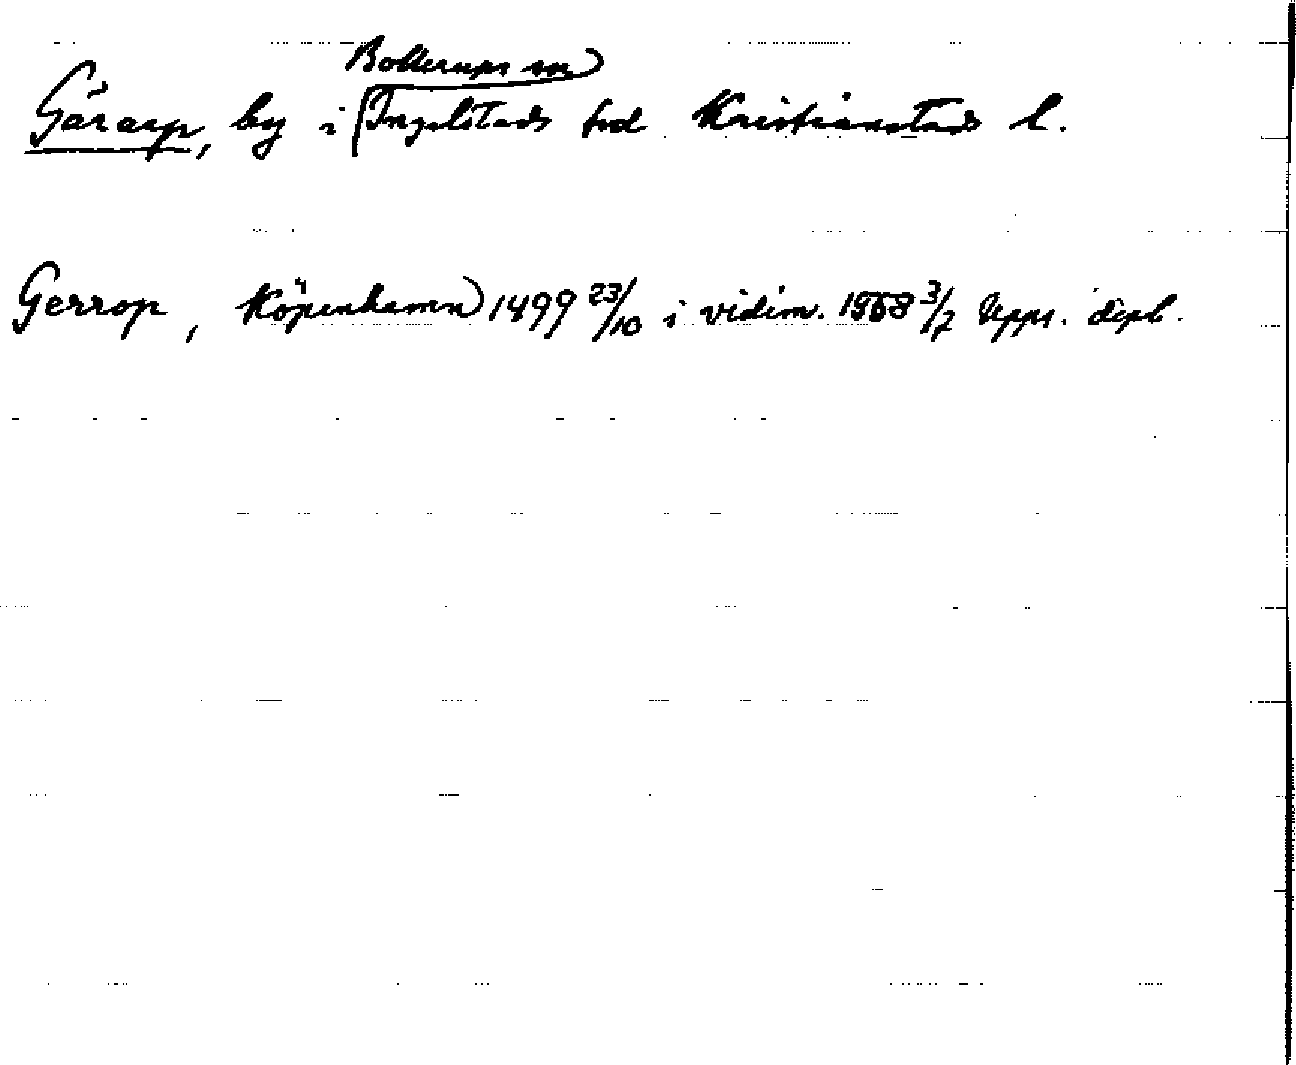 Bollerups sn
Gårarp, by i Ingelstads hd Kristianstads l.
Gerrop, Köpenhamn 1499 23/10 i vidim. 1568 3/7 Upps. dipl.